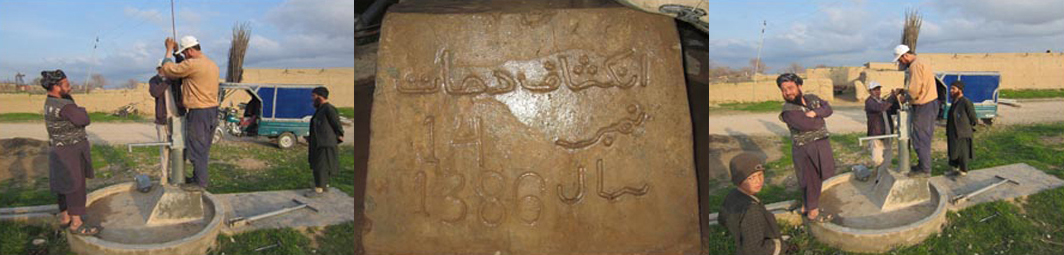 انکشاف دهات
نمبر 14
سال 1386